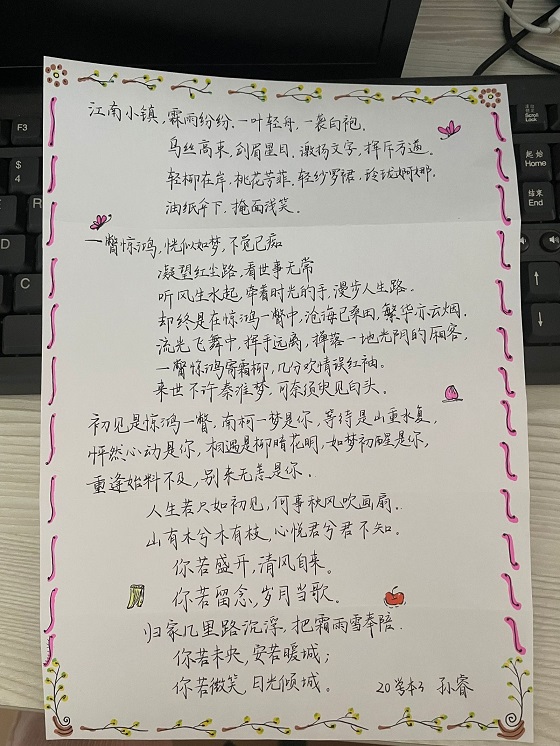 江南小镇,霖雨纷纷.一叶轻舟,一袭白袍.
乌丝高束,剑眉星目.激扬文字,挥斥方遒.
轻柳在岸,桃花芳菲.轻纱罗裙,玲珑婀娜.
油纸伞下,掩面浅笑.
一瞥惊鸿,恍似如梦,不觉已痴
凝望红尘路,看世事无常
听风生水起,牵着时光的手,漫步人生路.
却终是在惊鸿一瞥中,沧海已桑田,繁华亦云烟.
流光飞舞中,挥手远离,掸落一地光阴的厢客,
一瞥惊鸿霜柳,几分欢情误红袖.
来世不许秦淮梦,可奈须臾见白头.
初见是惊鸿一瞥,南柯一梦是你,等待是山重水复,
怦然心动是你,相遇是柳暗花明,如梦初醒是你,
重逢始料不及,别来无恙是你.
人生若只如初见,何事秋风吹画扇.
山有木兮木有枝,心悦君兮君不知。
你若盛开,清风自来。
你若留念,岁月当歌。
归家几里路沉浮,把霜雨雪奉陪.
你若未央,安若暖城;
你若微笑,日光倾城。
20学本3 孙睿
F3
$
4
R
D
C
Scroll
Lock
起始
Home
结束
End